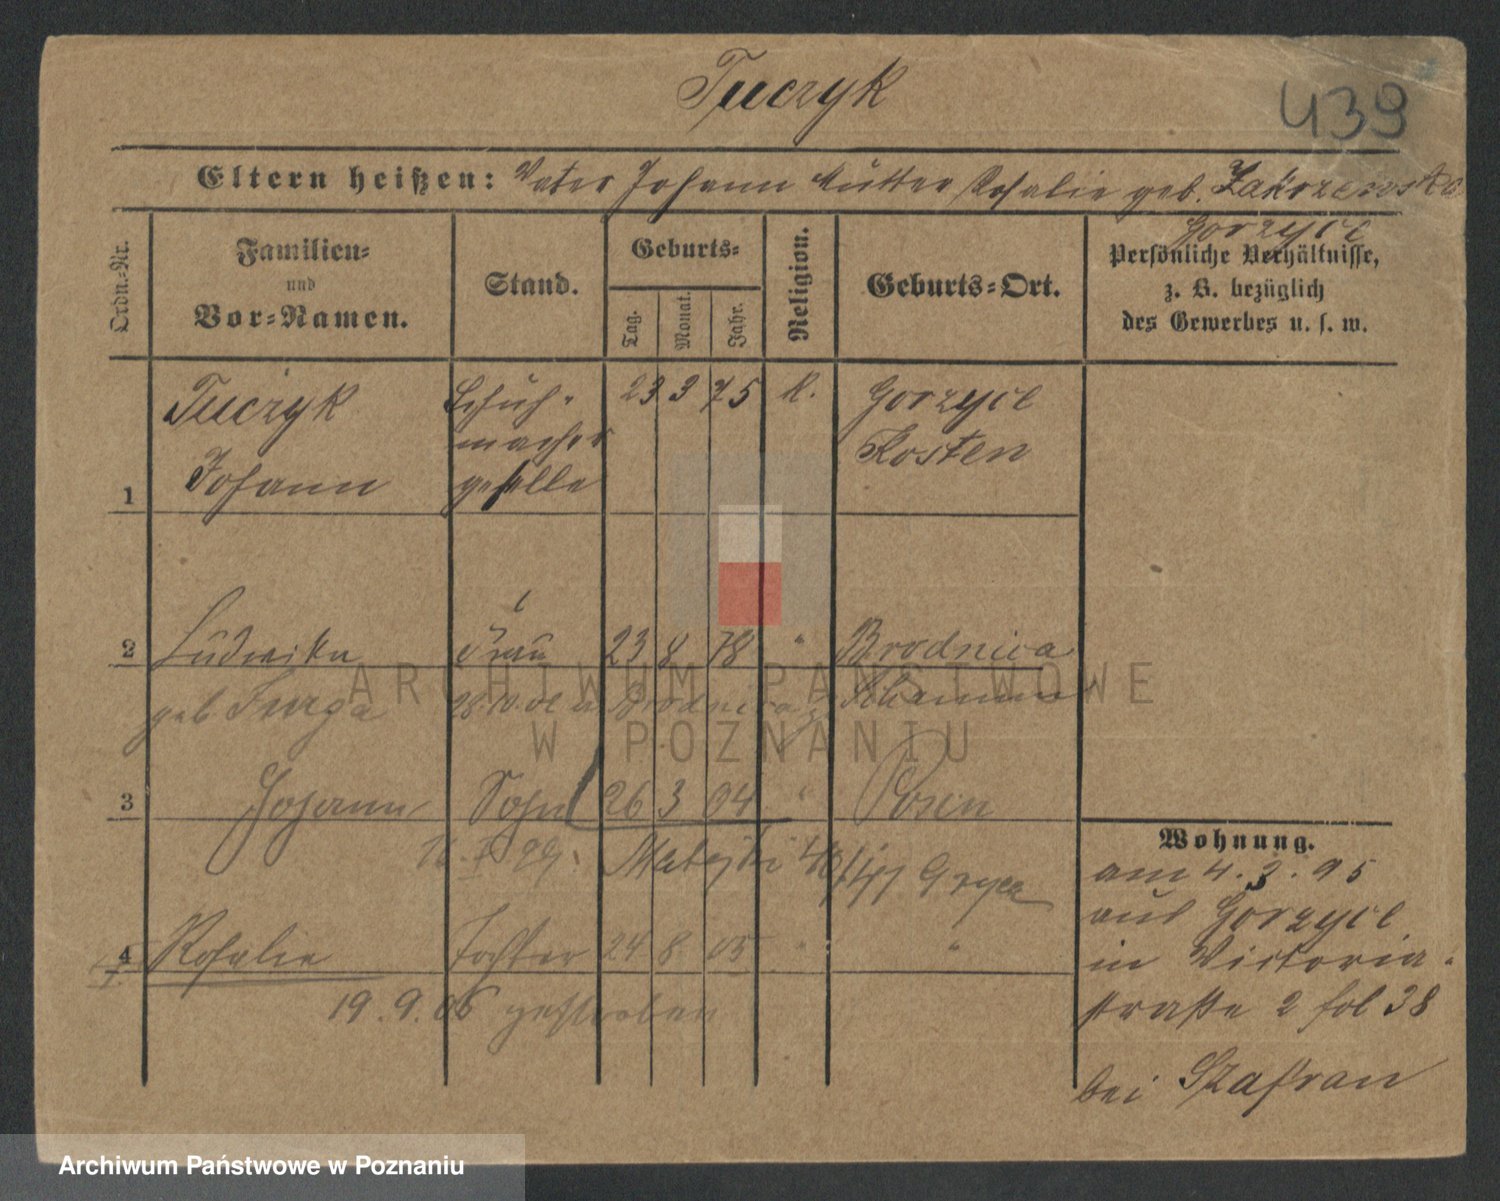 Tuczyk
439
Eltern heißen: Vater Johann Mutter Rosalie geb. Zakrzewska
Gorzyce
Ordn.=Nr.
Familien=
und
Vor=Namen.
Stand.
Geburts=
Tag.
Monat.
Jahr.
Religion.
Geburts=Ort.
Persönliche Verhältnisse,
z. B. bezüglich
des Gewerbes u. s. w.
1 Tuczyk Johann
Schuh-
macher
geselle
23 3 75 K.
Gorzyce
Kosten
2 Ludwika Frau 23 8 78 " Brodnica
geb Furga Brodnica Schrimm
3 Johann Sohn 26 3 04 " Posen
4 Rosalie Tochter 24 8 05 " "
19.9.06 gestorben
Wohnung.
am 4.3.95
aus Gorzyce
in Victoria-
straße 2 fol 38
bei Szafran
ARCHIWUM PAŃSTWOWE
W POZNANIU
Archiwum Państwowe w Poznaniu